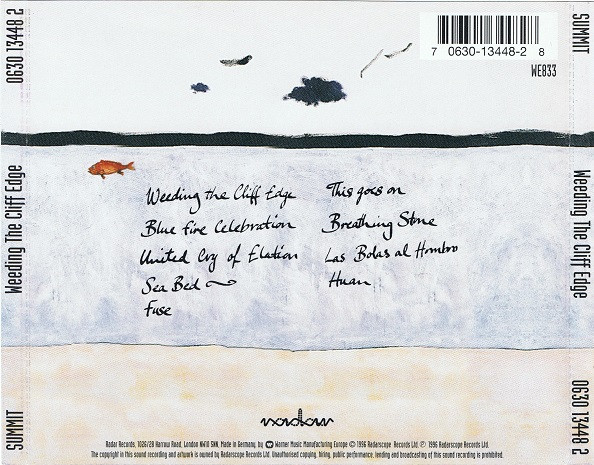 0630 13448 2
Weeding The Cliff Edge
SUMMIT
7 0630-13448-2 8
WE833
Weeding the Cliff Edge
Blue Fire Celebration
United Cry of Elation
Sea Bed
Fuse
This goes on
Breathing Stone
Las Bolas al Hombro
Huan
radar
Radar Records, 1026/28 Harrow Road, London NW10 5NN, Made in Germany, by Warner Music Manufacturing Europe © 1996 Radarscope Records Ltd. ℗ 1996 Radarscope Records Ltd.
The copyright in this sound recording and artwork is owned by Radarscope Records Ltd. Unauthorised copying, hiring, public performance, lending and broadcasting of this sound recording is prohibited.
SUMMIT
Weeding The Cliff Edge
0630 13448 2